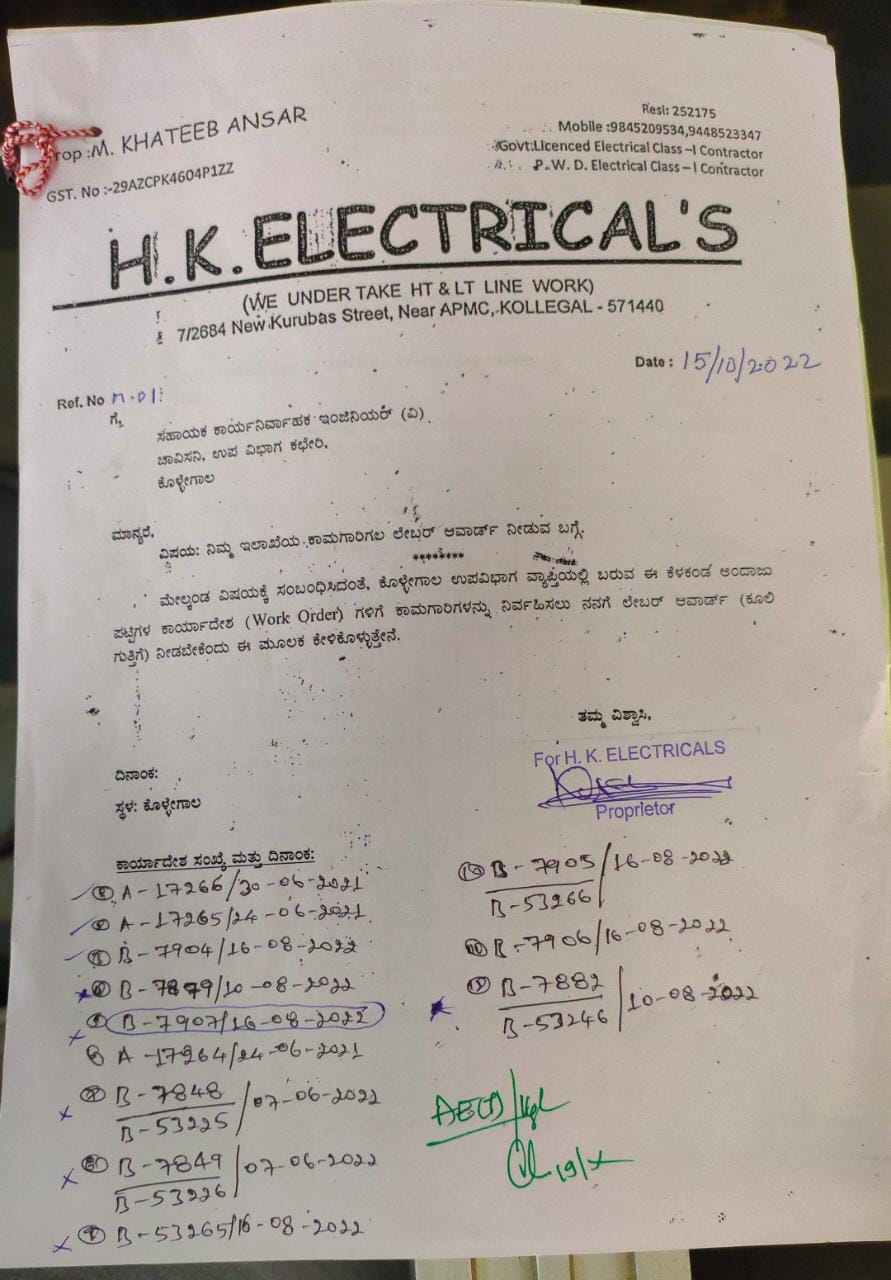 Prop :M. KHATEEB ANSAR
GST. No :-29AZCPK4604P1ZZ
Resi: 252175
Mobile :9845209534,9448523347
Govt:Licenced Electrical Class –I Contractor
P. W. D. Electrical Class –I Contractor
H.K.ELECTRICAL'S
(WE UNDER TAKE HT & LT LINE WORK)
7/2684 New Kurubas Street, Near APMC, KOLLEGAL - 571440
Date : 15/10/2022
Ref. No n.01
ಗೆ,
ಸಹಾಯಕ ಕಾರ್ಯನಿರ್ವಾಹಕ ಇಂಜಿನಿಯರ್ (ವಿ)
ಚಾವಿಸನಿ, ಉಪ ವಿಭಾಗ ಕಛೇರಿ,
ಕೊಳ್ಳೇಗಾಲ
ಮಾನ್ಯರೆ,
ವಿಷಯ: ನಿಮ್ಮ ಇಲಾಖೆಯ ಕಾಮಗಾರಿಗಲ ಲೇಬರ್ ಆವಾರ್ಡ್ ನೀಡುವ ಬಗ್ಗೆ.
********
ಮೇಲ್ಕಂಡ ವಿಷಯಕ್ಕೆ ಸಂಬಂಧಿಸಿದಂತೆ, ಕೊಳ್ಳೇಗಾಲ ಉಪವಿಭಾಗ ವ್ಯಾಪ್ತಿಯಲ್ಲಿ ಬರುವ ಈ ಕೆಳಕಂಡ ಅಂದಾಜು
ಪಟ್ಟಿಗಳ ಕಾರ್ಯಾದೇಶ (Work Order) ಗಳಿಗೆ ಕಾಮಗಾರಿಗಳನ್ನು ನಿರ್ವಹಿಸಲು ನನಗೆ ಲೇಬರ್ ಆವಾರ್ಡ್ (ಕೂಲಿ
ಗುತ್ತಿಗೆ) ನೀಡಬೇಕೆಂದು ಈ ಮೂಲಕ ಕೇಳಿಕೊಳ್ಳುತ್ತೇನೆ.
ತಮ್ಮ ವಿಶ್ವಾಸಿ,
For H. K. ELECTRICALS
Proprietor
ದಿನಾಂಕ:
ಸ್ಥಳ: ಕೊಳ್ಳೇಗಾಲ
ಕಾರ್ಯಾದೇಶ ಸಂಖ್ಯೆ ಮತ್ತು ದಿನಾಂಕ:
A - 17266/30-06-2021
A - 17265/24-06-2021
B - 7904/16-08-2022
B - 7899/10-08-2022
B - 7907/16-08-2022
A - 17264/24-06-2021
B - 7848
B - 53225 /07-06-2022
B - 7849
B - 53226 /07-06-2022
B - 53265/16-08-2022
B - 7905
B - 53266 /16-08-2022
B - 7906/16-08-2022
B - 7882
B - 53246 /10-08-2022
19/x